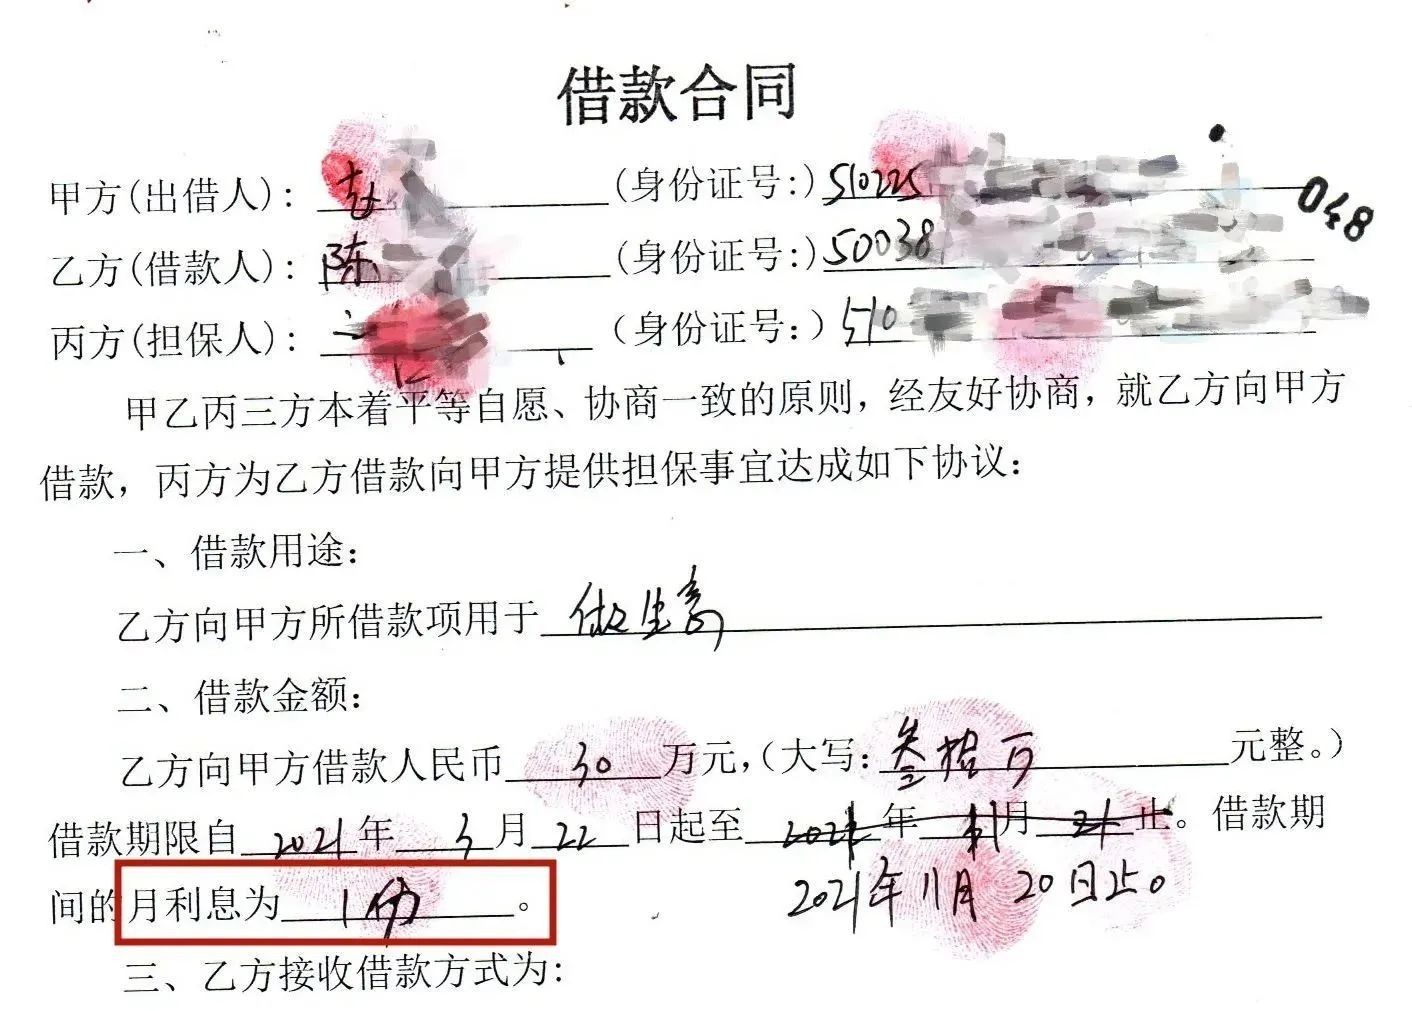 借款合同
048
甲方(出借人): (身份证号:)510225
乙方(借款人): 陈 (身份证号:)50038
丙方(担保人): (身份证号:)510
甲乙丙三方本着平等自愿、协商一致的原则,经友好协商,就乙方向甲方
借款,丙方为乙方借款向甲方提供担保事宜达成如下协议:
一、借款用途:
乙方向甲方所借款项用于做生意
二、借款金额:
乙方向甲方借款人民币30万元,(大写:叁拾万元整。)
借款期限自2021年3月22日起至年月止。借款期
间的月利息为1分。 2021年11月20日止。
三、乙方接收借款方式为: